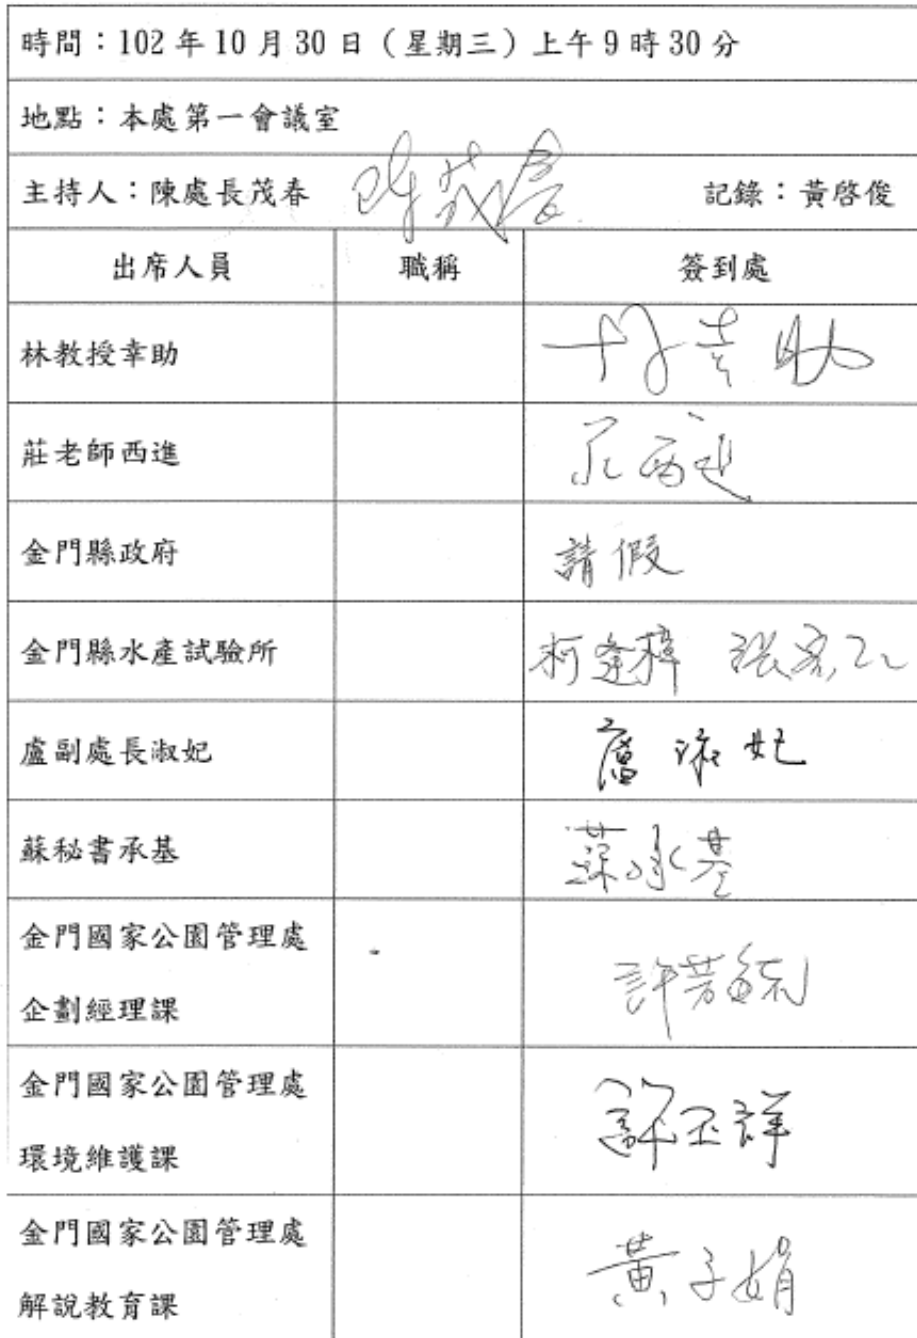 時間：102 年 10 月 30 日（星期三）上午 9 時 30 分
地點：本處第一會議室
主持人：陳處長茂春 陳茂春 記錄：黃啓俊
出席人員 職稱 簽到處
林教授幸助 林幸助
莊老師西進 莊西進
金門縣政府 請假
金門縣水產試驗所 柯逢樟
盧副處長淑妃 盧淑妃
蘇秘書承基 蘇承基
金門國家公園管理處
企劃經理課 許芳毓
金門國家公園管理處
環境維護課 許丕祥
金門國家公園管理處
解說教育課 黃子娟